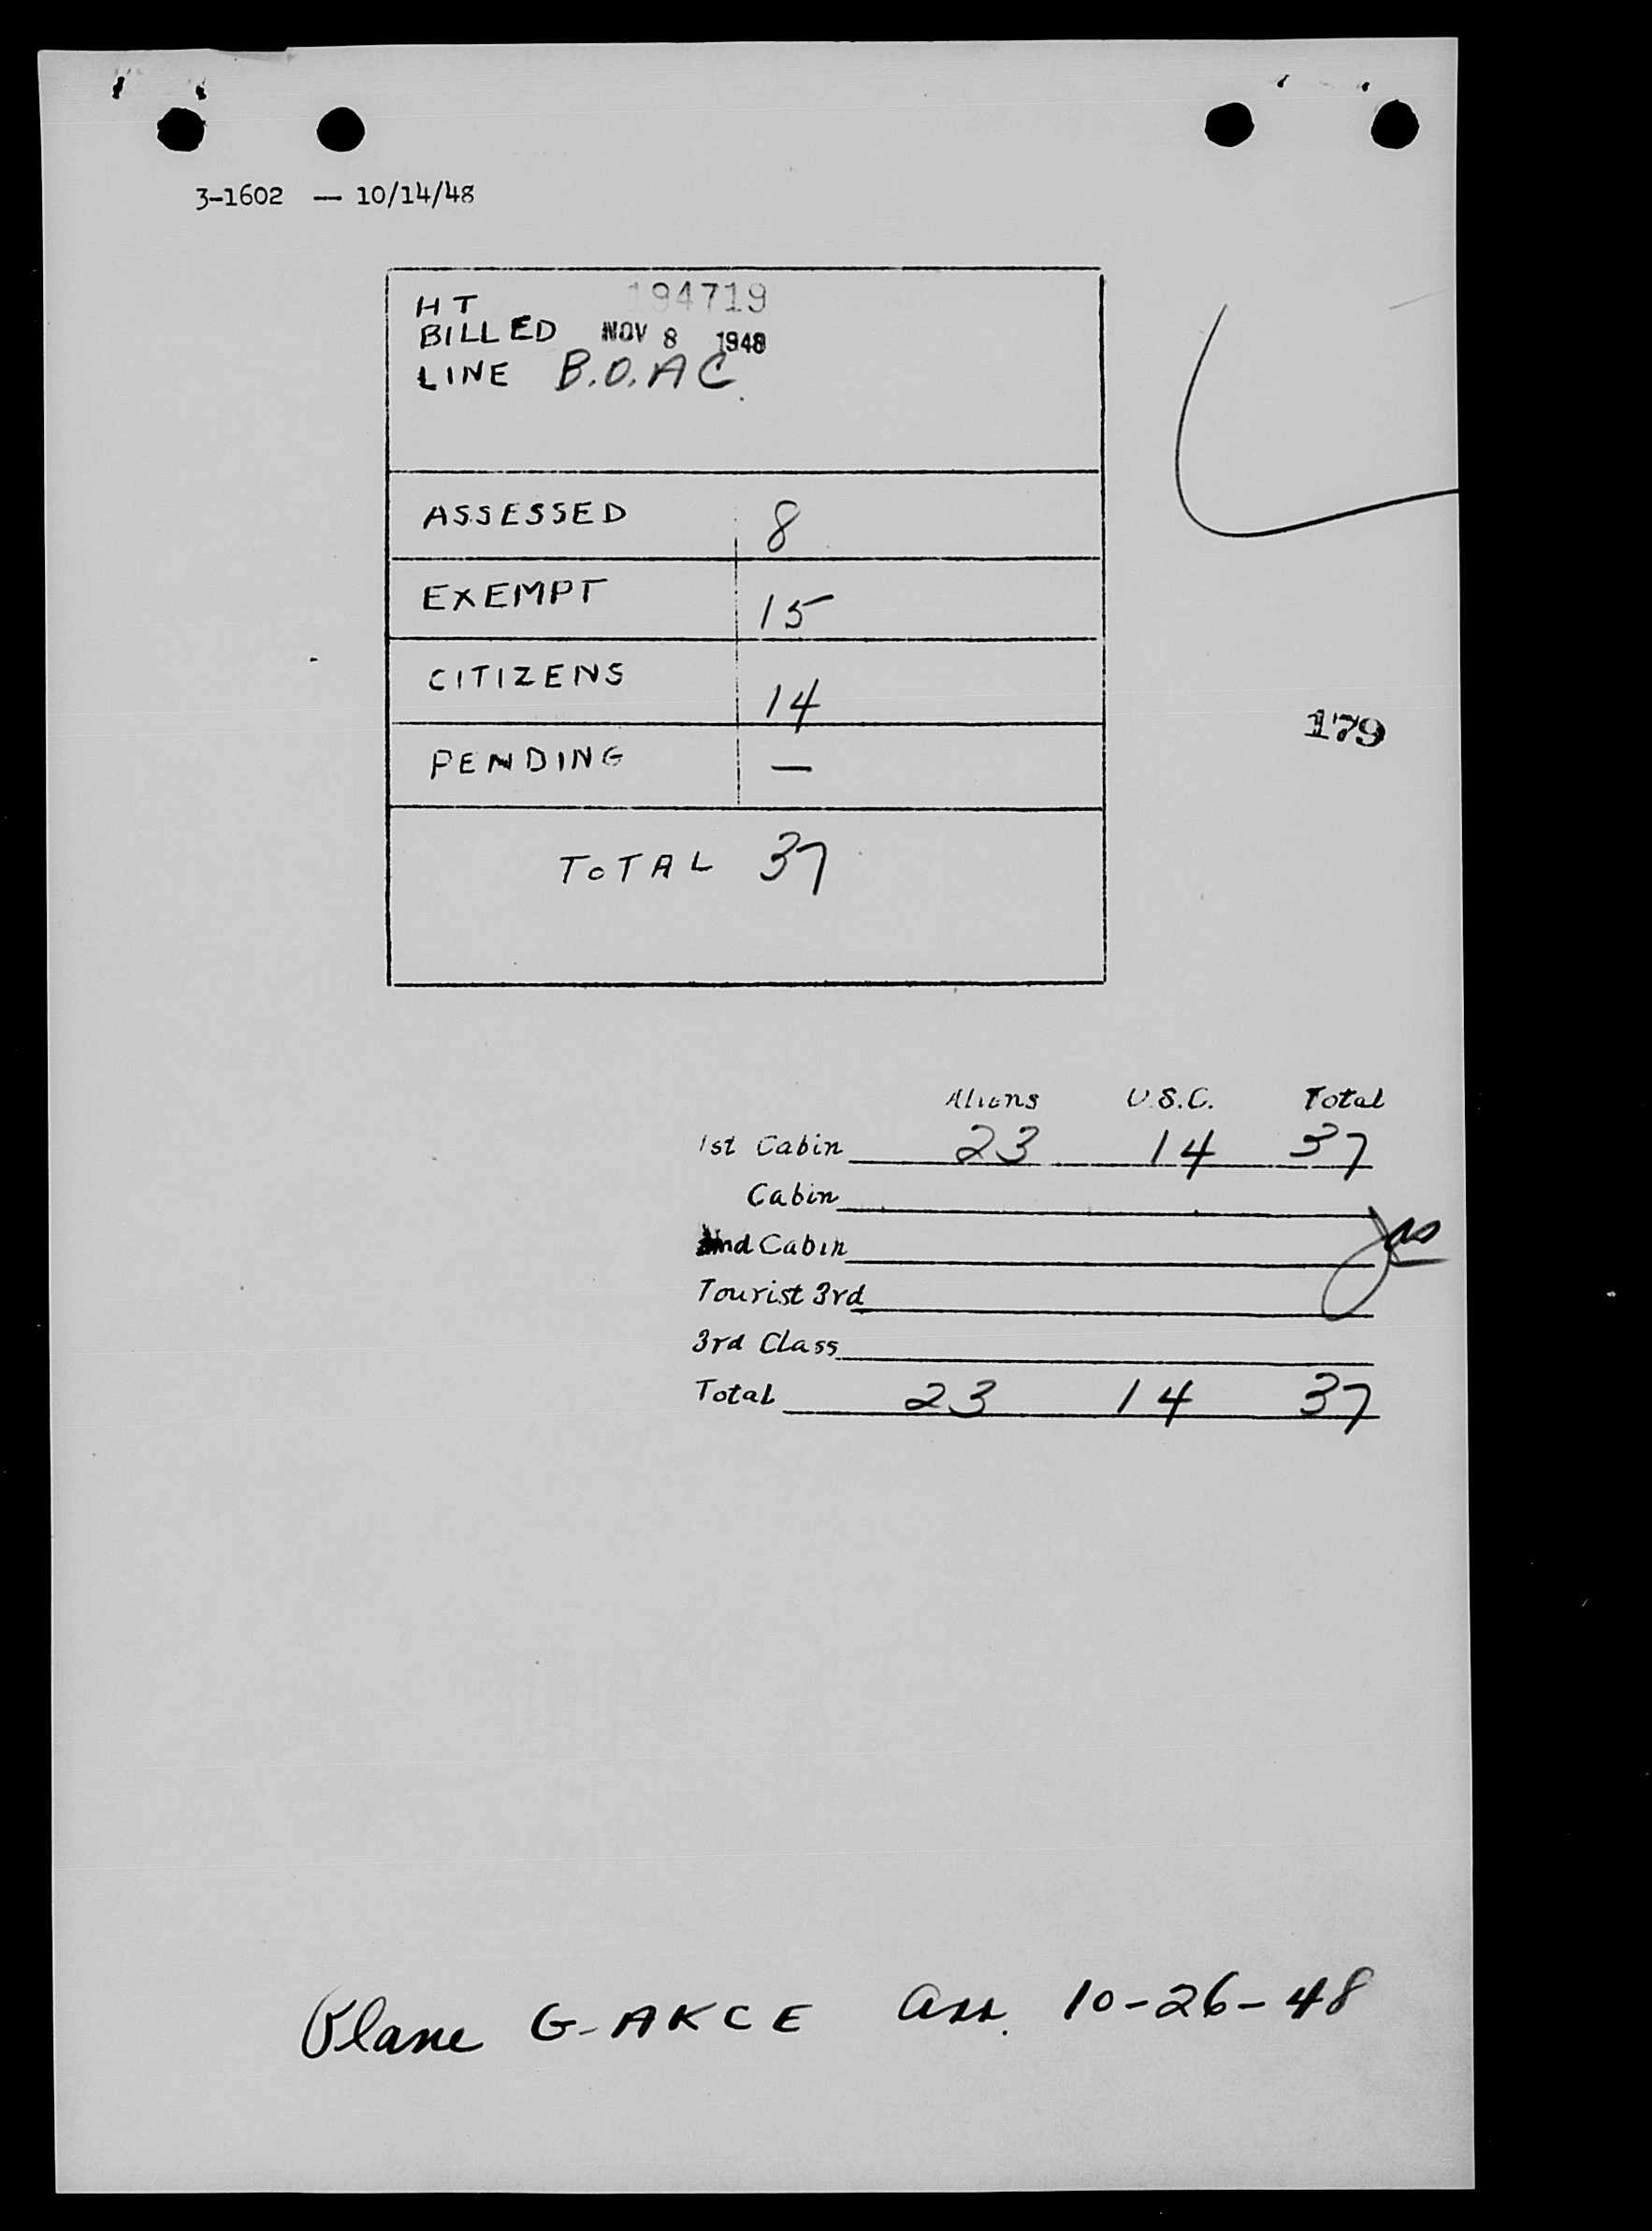 3-1602 — 10/14/48
HT 194719
BILLED NOV 8 1948
LINE B.O.A.C.
ASSESSED 8
EXEMPT 15
CITIZENS 14
PENDING —
179
TOTAL 37
Aliens U.S.C. Total
1st Cabin 23 14 37
Cabin
2nd Cabin
Tourist 3rd
3rd Class
Total 23 14 37
Plane G-AKCE arr. 10-26-48